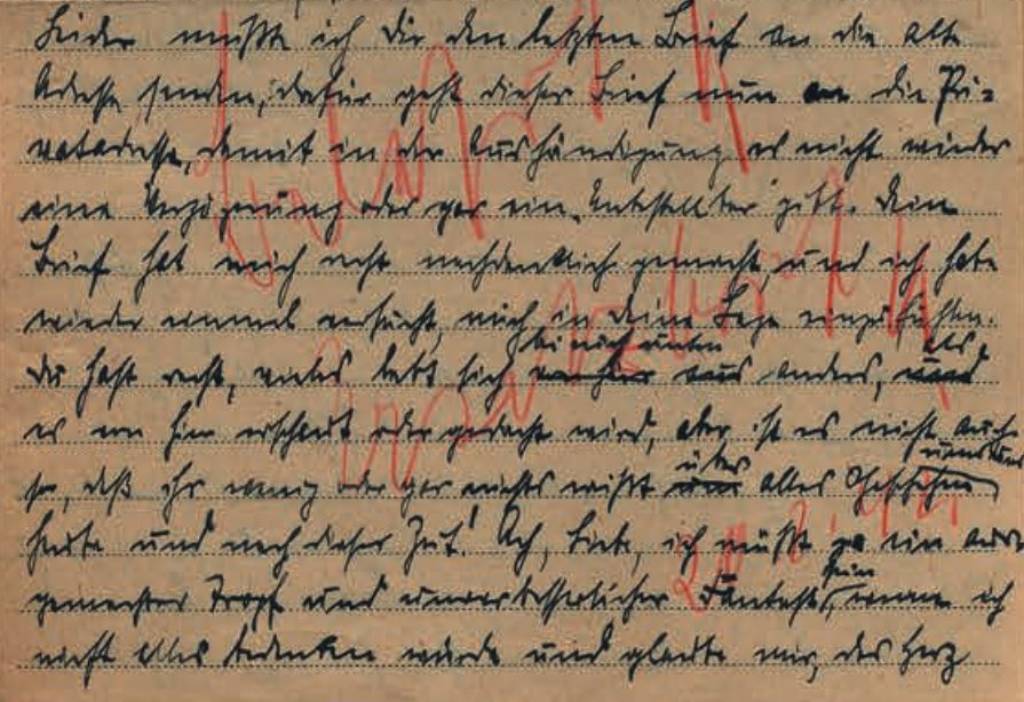 Leider mußte ich Dir den letzten Brief an die alte
Adresse senden, dafür geht dieser Brief nun an die Pri-
vatadresse, damit in der Aushändigung es nicht wieder
eine Verzögerung oder gar ein „Unbestellbar“ gibt. Dein
Brief hat mich recht nachdenklich gemacht, und ich habe
wieder einmal versucht, mich in Deine Lage einzufühlen.
Du hast recht, vieles lebt sich bei euch unten anders, als
es von hier erschaut oder gedacht wird, aber ist es nicht auch
so, daß ihr wenig oder gar nichts wißt über alles Geschehen
heute und nach dieser Zeit! Ach, Liebe, ich müßte ja ein
gemachter Tropf und unverbesserlicher Fantast sein, wenn ich
nicht alles bedenken würde und glaube mir, das Herz